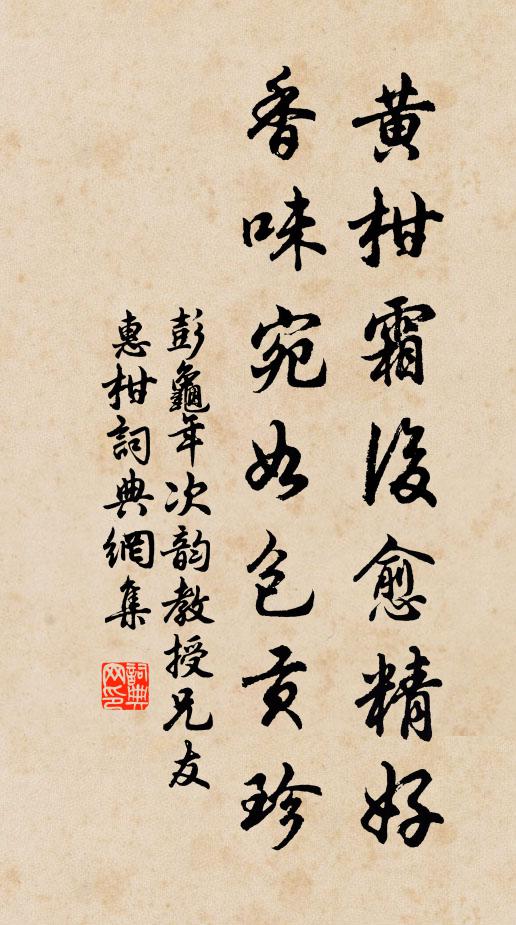 黄柑霜後愈精好
香味宛如包貢珍
彭龜年次韵教授兄友
惠柑詞典網集
詞典
网印